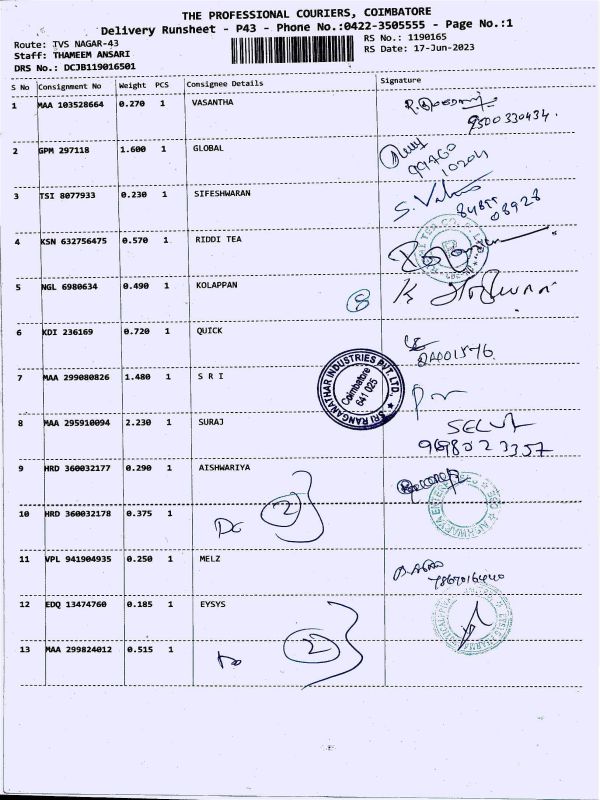 THE PROFESSIONAL COURIERS, COIMBATORE
Delivery Runsheet - P43 - Phone No.:0422-3505555 - Page No.:1
Route: TVS NAGAR-43
RS No.: 1190165
Staff: THAMEEM ANSARI
RS Date: 17-Jun-2023
DRS No.: DCJB119016501
S No Consignment No Weight PCS Consignee Details Signature
1 MAA 103528664 0.270 1 VASANTHA
9500330434.
2 GPM 297118 1.600 1 GLOBAL
99460
10204
3 TSI 8077933 0.230 1 SIFESHWARAN
S.
84899
08928
4 KSN 632756475 0.570 1 RIDDI TEA
5 NGL 6980634 0.490 1 KOLAPPAN
8 K
6 KDI 236169 0.720 1 QUICK
7 MAA 299080826 1.480 1 S R I
SRI RANGANATHAR INDUSTRIES PVT. LTD.
Coimbatore
641 025
8 MAA 295910094 2.230 1 SURAJ
SELVA
9698023357
9 HRD 360032177 0.290 1 AISHWARIYA
10 HRD 360032178 0.375 1
Do 2
11 VPL 941904935 0.250 1 MELZ
12 EDQ 13474760 0.185 1 EYSYS
13 MAA 299824012 0.515 1
Do 2